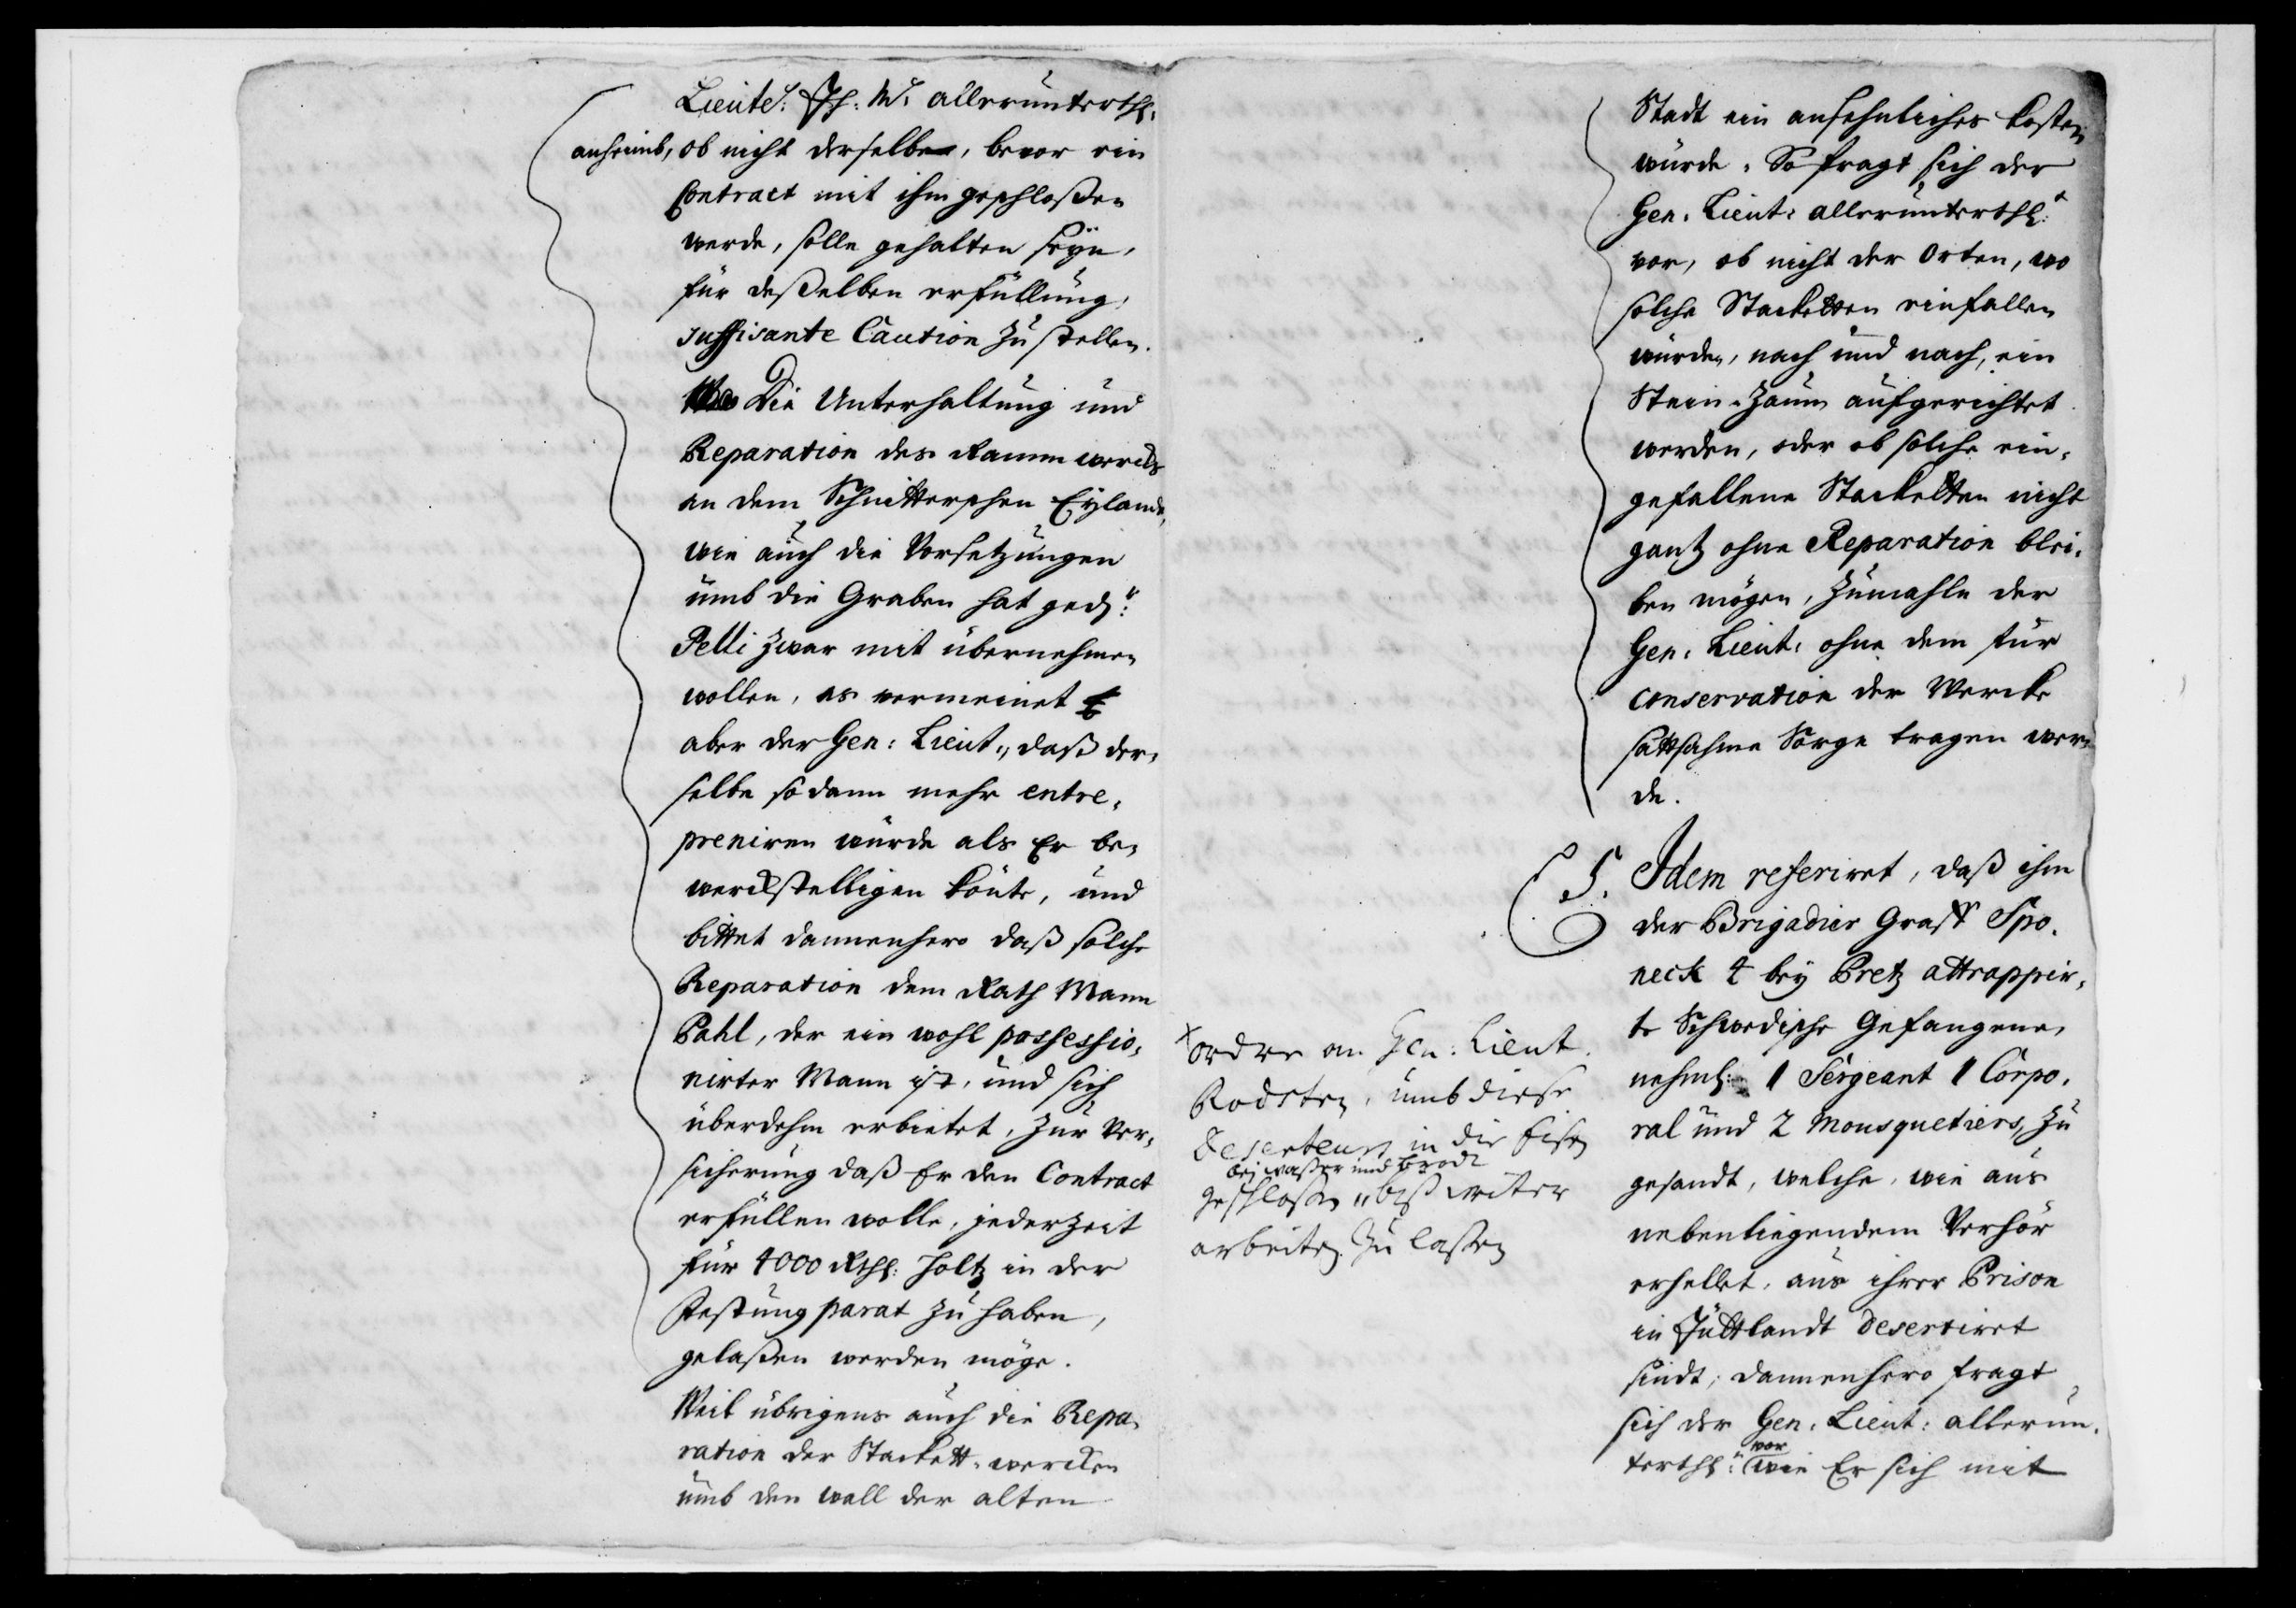 Lieute: Ih: M: allerunterthl.
anheimb, ob nicht derselbe, bevor ein
Contract mit ihm geschloßen
werde, solle gehalten seyn,
für deßelben erfüllung,
suffisante Caution zu stellen.
Die Unterhaltung und
Reparation des Ramm wercks
an dem Schnitterschen Eylande,
wie auch die Vorsetzungen
umb die Graben hat gedr:
Pelli zwar mit übernehmen
wollen, es vermeinet
aber der Gen: Lieut:, daß der-
selbe sodann mehr entre-
preniren würde als Er be-
werckstelligen könte, und
bittet dannenhero daß solche
Reparation dem Rath Mann
Pahl, der ein wohl possessio-
nirter Mann ist, und sich
überdehm erbietet, zur Ver-
sicherung daß Er den Contract
erfüllen wolle, jederzeit
für 4000 Rthl: Holtz in der
Festung parat zu haben,
gelaßen werden möge.
Weil übrigens auch die Repa-
ration der Stackett-wercken
umb den wall der alten
Stadt ein ansehnliches kosten
würde. So fragt sich der
Gen: Lieut: allerunterthl:
vor, ob nicht der Orten, wo
solche Stacketten einfallen
würden, nach und nach, ein
Stein-Zaun aufgerichtet
werden, oder ob solche ein-
gefallene Stacketten nicht
gantz ohne Reparation blei-
ben mögen, zumahle der
Gen: Lieut: ohne dem für
conservation der Wercke
sattsahme Sorge tragen wer-
de.
5. Idem referiret, daß ihm
der Brigadier Graff Spo-
neck 4 bey Pretz attrappir-
te Schwedische Gefangene,
nehml: 1 Sergeant 1 Corpo-
ral und 2 Mousquetiers, zu
gesandt, welche, wie aus
nebenliegendem Verhör
erhellet, aus ihrer Prison
in Jüttlandt desertiret
sindt; dannenhero fragt
sich der Gen: Lieut: allerun-
terthl: vor wie Er sich mit
x ordre an Gen: Lieut.
Rodsten, umb diese
Deserteurs in die Eisen
bei waßer und brodt
geschloßen biß weiter
arbeiten zu laßen